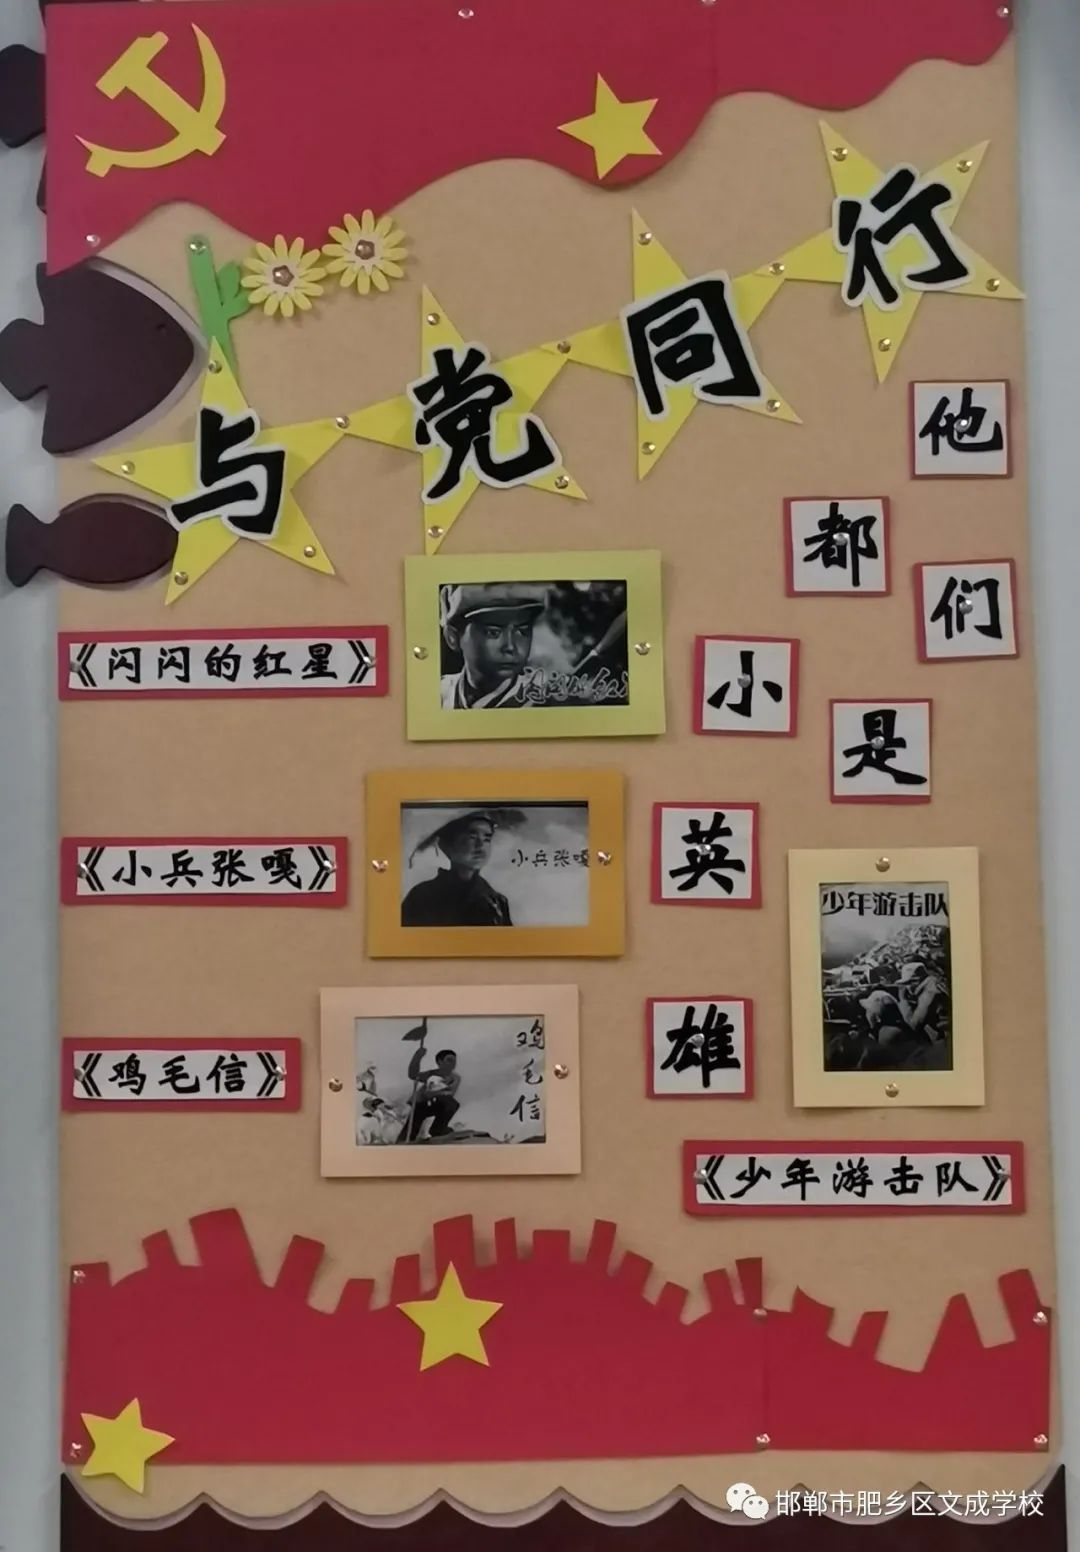 与党同行
他们都是小英雄
《闪闪的红星》
闪闪的红
《小兵张嘎》
小兵张嘎
《鸡毛信》
鸡毛信
少年游击队
《少年游击队》
邯郸市肥乡区文成学校